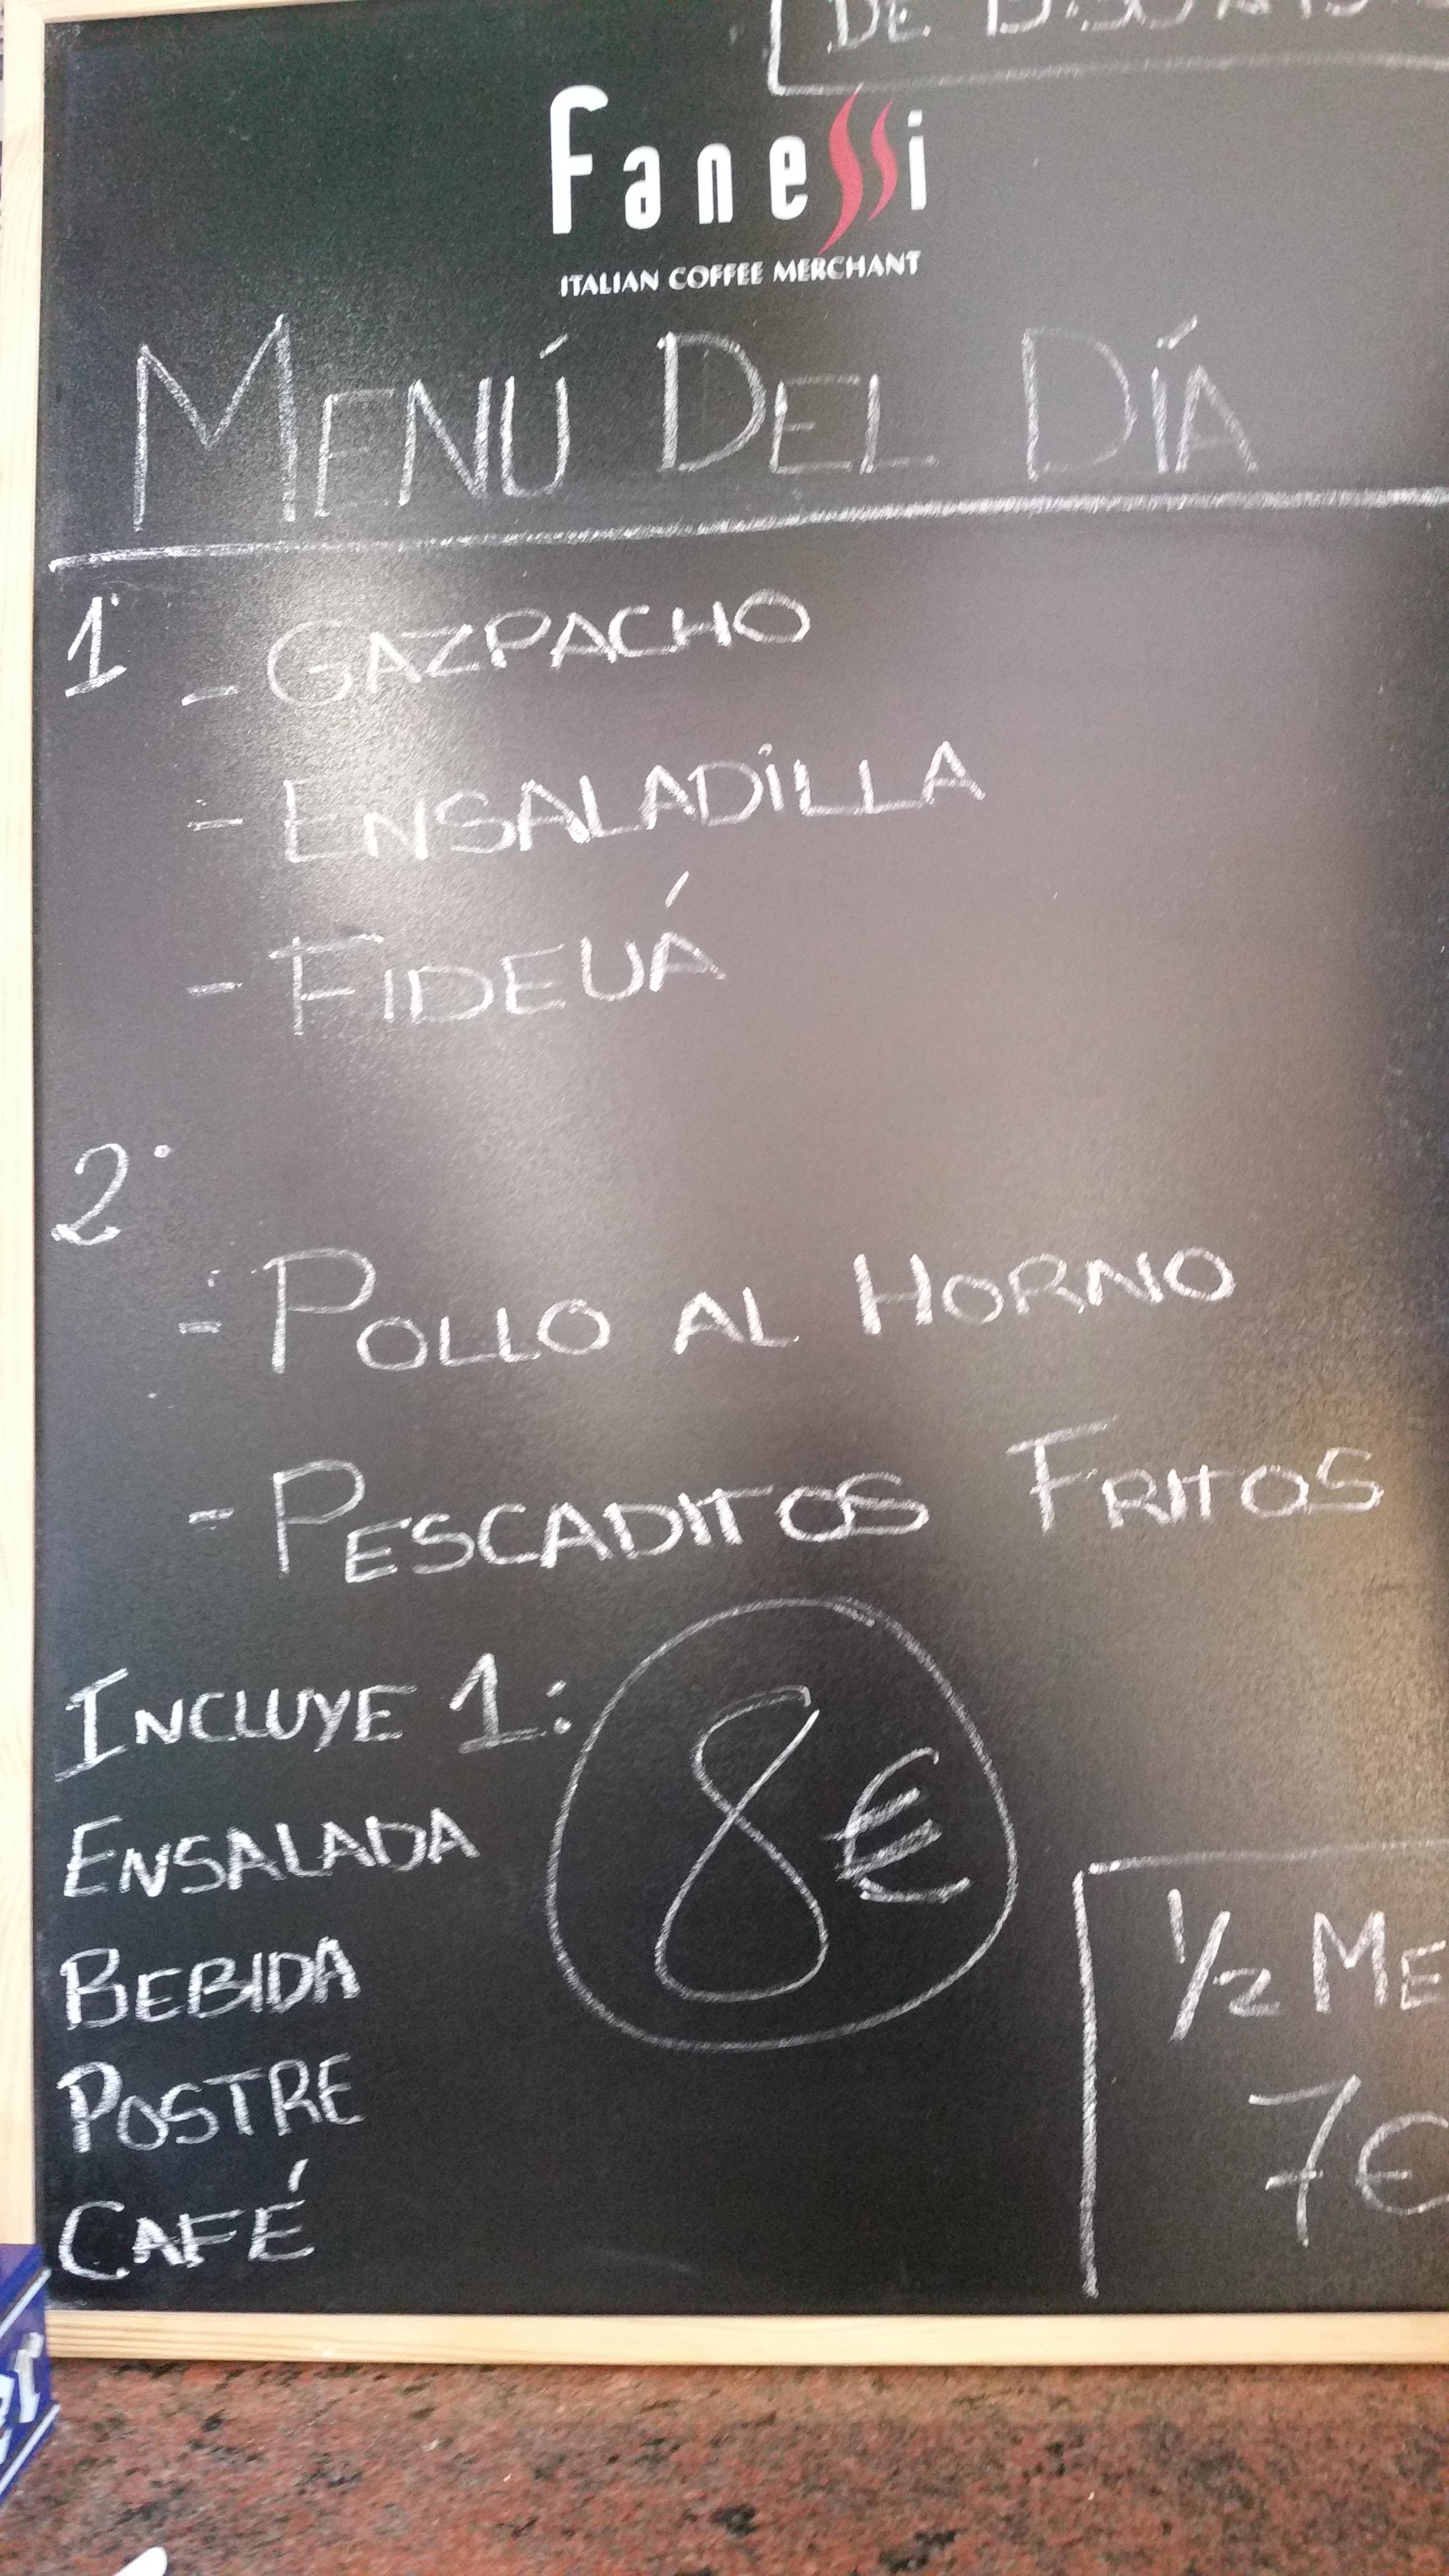 DE
Fanessi
ITALIAN COFFEE MERCHANT
MENÚ DEL DÍA
1º - GAZPACHO
- ENSALADILLA
- FIDEUÁ
2º
- POLLO AL HORNO
- PESCADITOS FRITOS
INCLUYE 1:
ENSALADA
BEBIDA
POSTRE
CAFÉ
8€
1/2 ME
7€